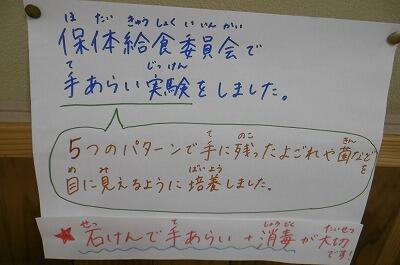 ほたいきゅうしょくいいんかい
保体給食委員会で
て じっけん
手あらい実験をしました。
て のこ きん
5つのパターンで手に残ったよごれや菌などを
め み ばいよう
目に見えるように培養しました。
せっ て しょうどく たいせつ
★石けんで手あらい+消毒が大切です!